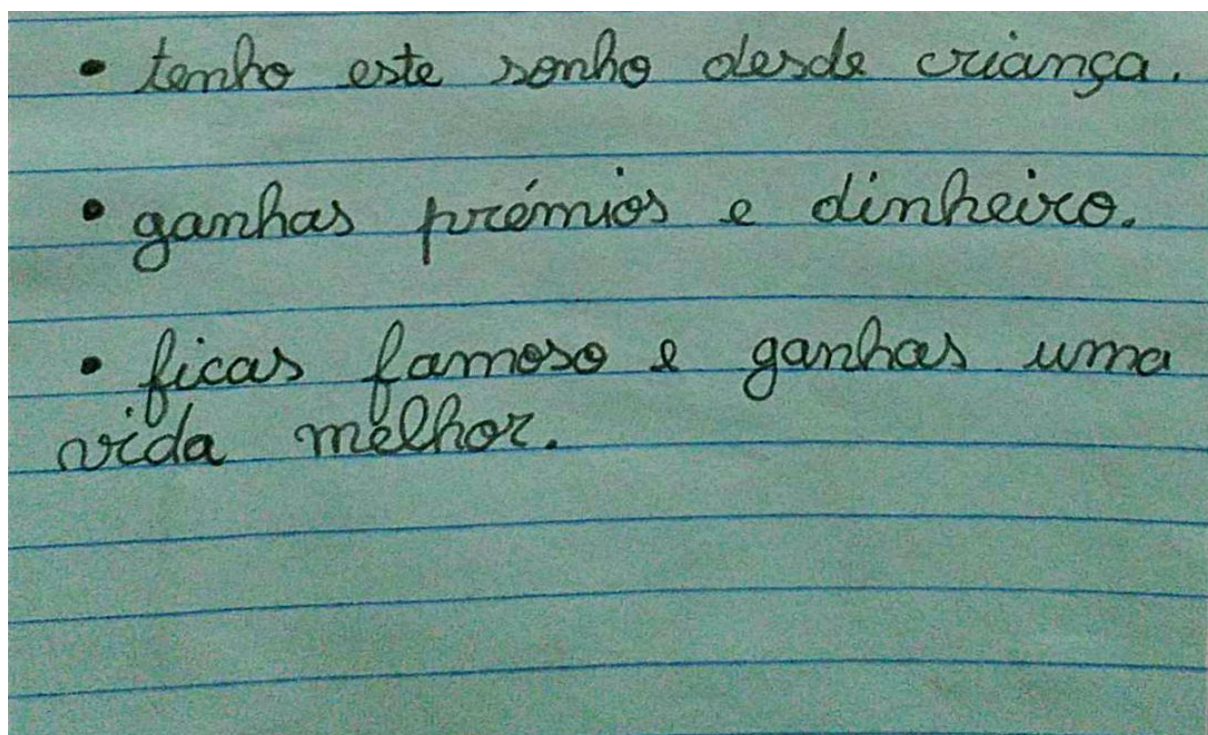 • tenho este sonho desde criança.
• ganhas prémios e dinheiro.
• ficas famoso e ganhas uma
vida melhor.